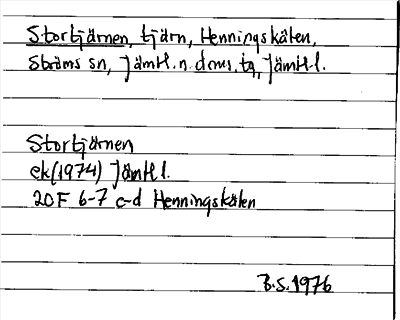 Stortjärnen, tjärn, Henningskälen,
Ströms sn, Jämtl. n. doms. tg, Jämtl l.
Stortjärnen
ek (1974) Jämtl l.
20F 6-7 c-d Henningskälen
B.S. 1976